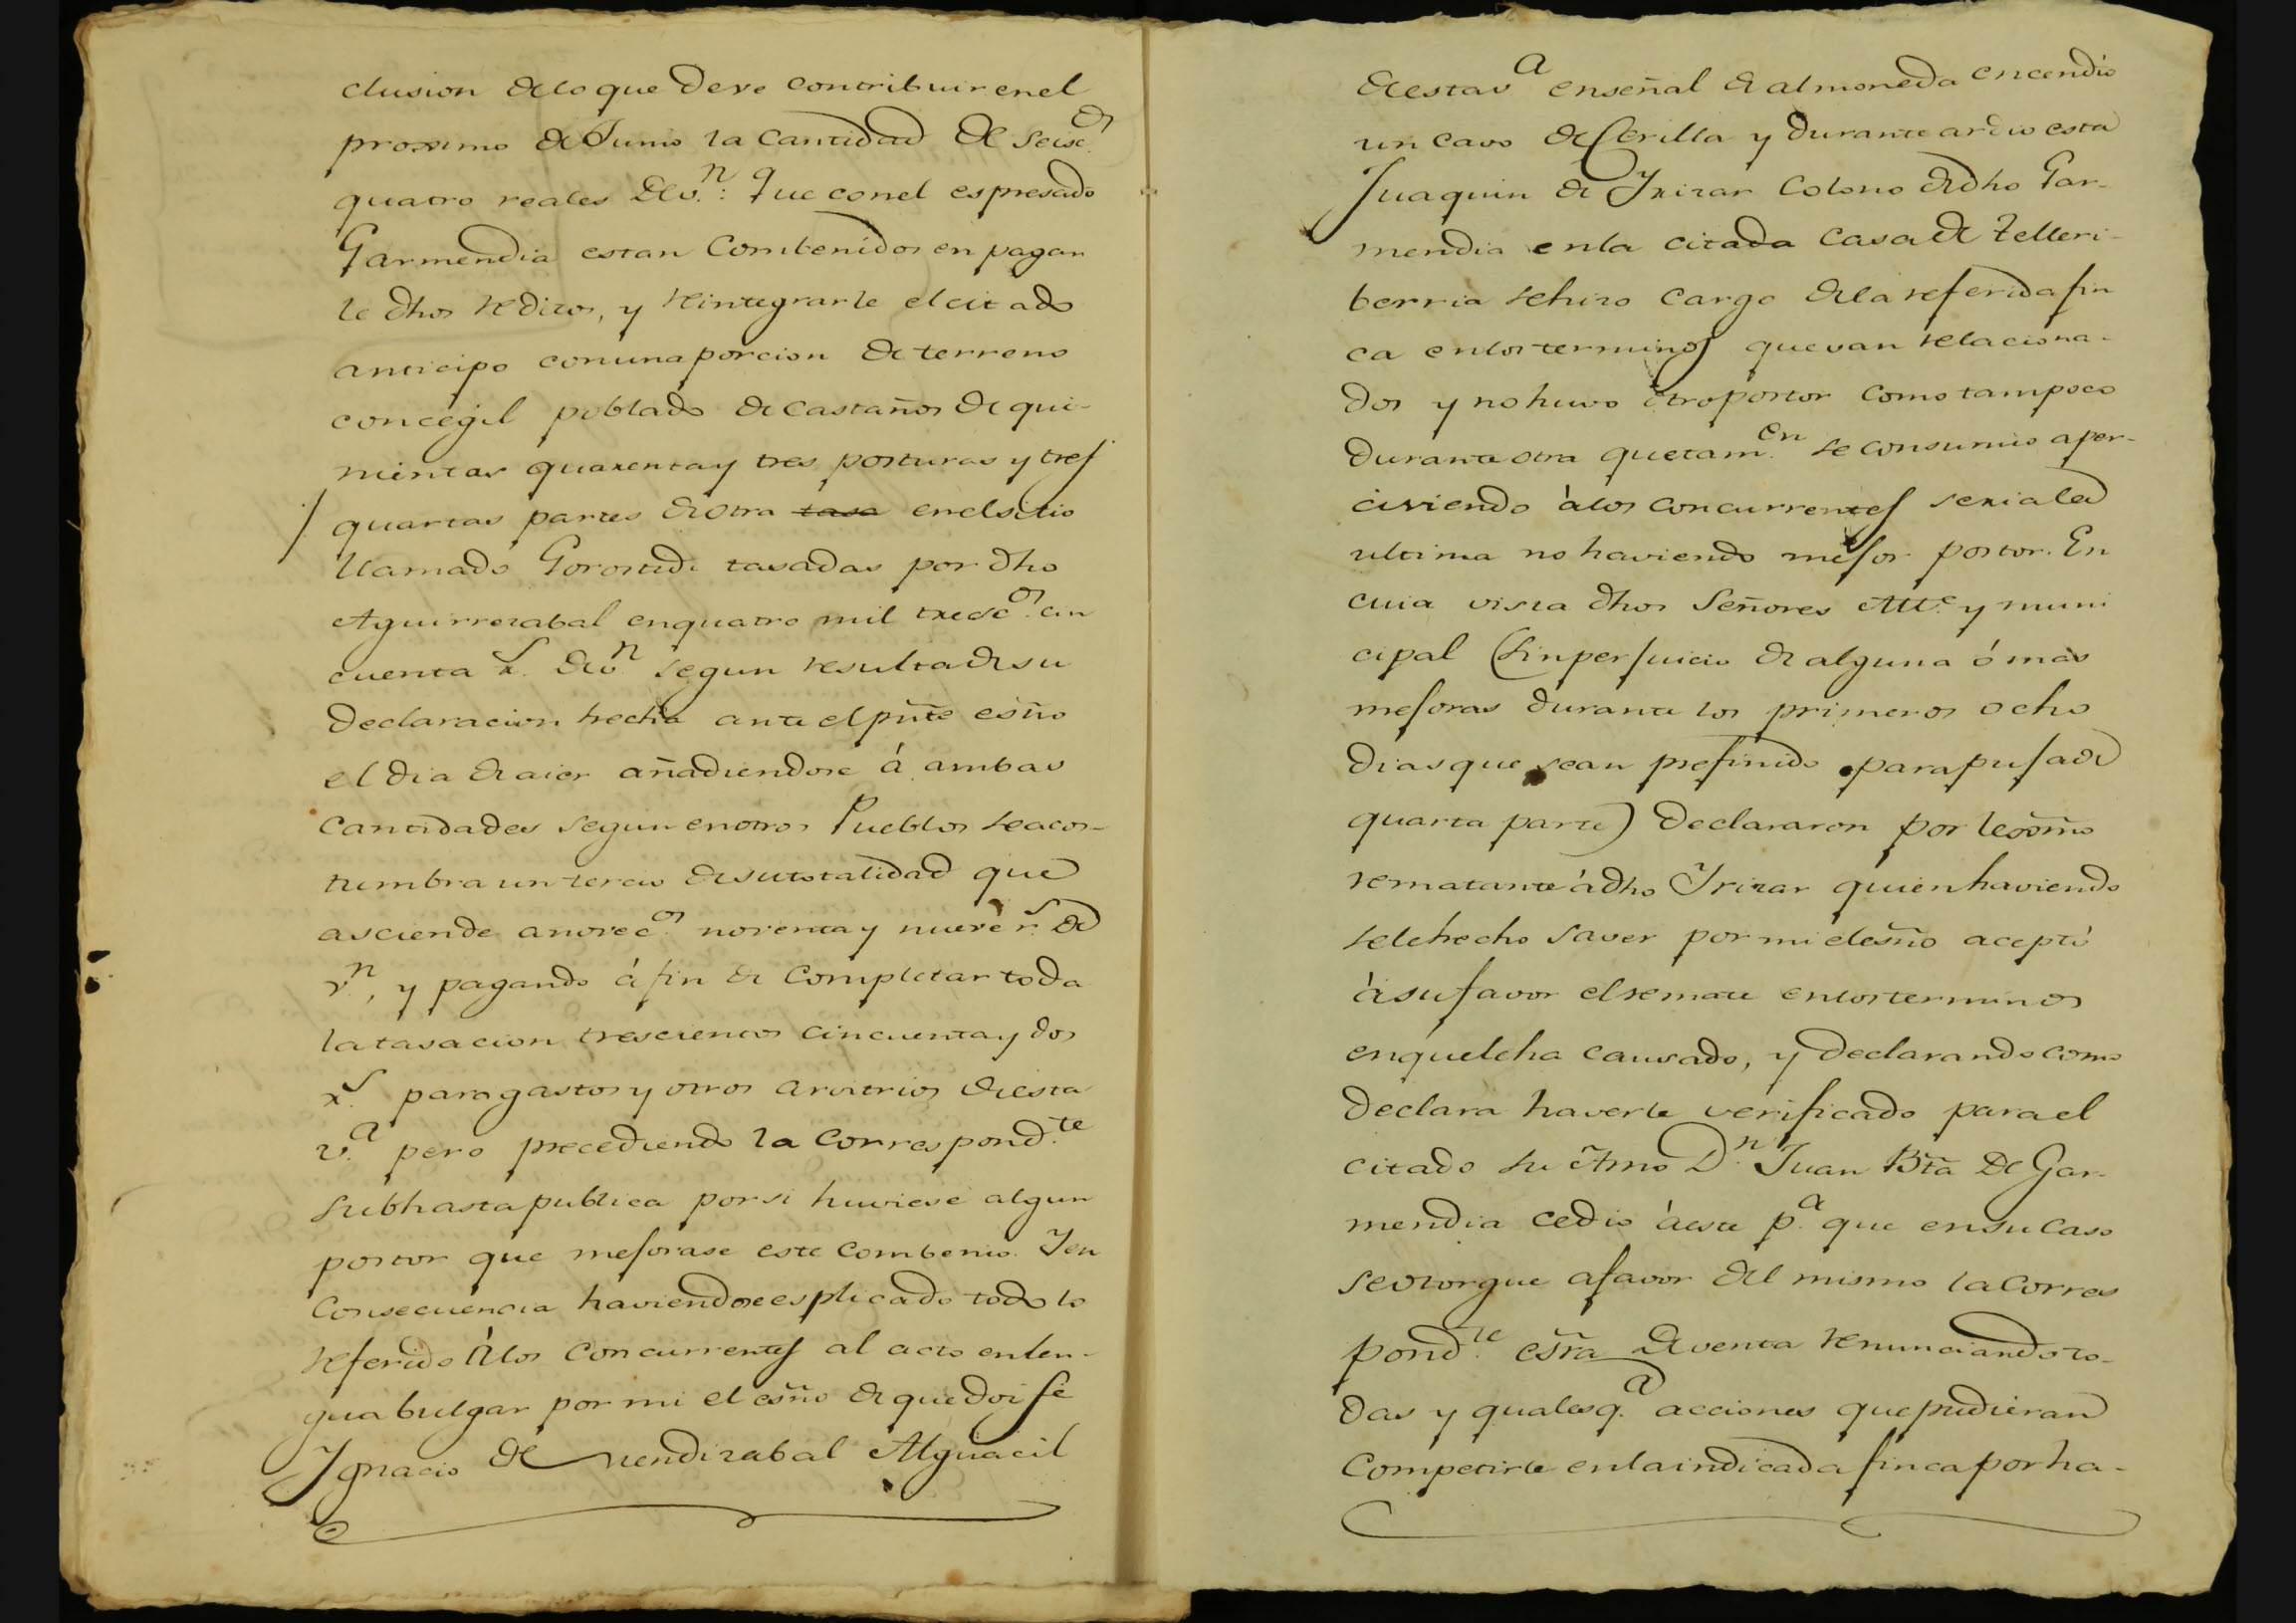 clusion de lo que deve contribuir en el
proximo de Junio la cantidad de seisc.os
quatro reales de v.n: Que con el espresado
Garmendia estan combenidos en pagar
le dhos reditos, y reintegrarle el citado
anticipo con una porcion de terreno
concegil poblado de castaños de qui-
nientas quarenta y tres posturas y tres
quartas partes de otra tasa en el sitio
llamado Gorostidi tasadas por dho
Aguirrezabal en quatro mil tresc.os cin
cuenta r.s de v.n segun resulta de su
declaracion hecha ante el pnte esño
el dia de aier añadiendose á ambas
cantidades segun en otros Pueblos se acos-
tumbra un tercio de su totalidad que
asciende a novec.os noventa y nueve r.s de
v.n, y pagando á fin de completar toda
la tasacion trescientos cincuenta y dos
r.s para gastos y otros arvitrios de esta
v.a pero precediendo la correspond.te
subhasta publica por si huviese algun
postor que mejorase este combenio. Y en
consecuencia haviendose esplicado todo lo
referido á los concurrentes al acto en len-
gua bulgar por mi el esño de que doi fe
Ignacio de Mendizabal Alguacil
de esta v.a en señal de almoneda encendio
un cavo de Cerilla y durante ardio esta
Juaquin de Yrizar Colono de dho Gar-
mendia en la citada Casa de Telleri-
berria se hizo cargo de la referida fin
ca en los terminos que van relaciona-
dos y no huvo otro postor como tampoco
durante otra que tam.en se consumio aper-
civiendo á los concurrentes seria la
ultima no haviendo mejor postor. En
cuia vista dhos Señores Alc.e y muni
cipal (sin perjuicio de alguna ó mas
mejoras durante los primeros ocho
dias que sean prefinido para puja de
quarta parte) declararon por lexitmo
rematante á dho Yrizar quien haviendo
sele hecho saver por mi el esño aceptó
á su favor el remate en los terminos
en que le ha causado, y declarando como
declara haverle verificado para el
citado su Amo D.n Juan Bta de Gar-
mendia cedio á este p.a que en su caso
se otorgue a favor del mismo la corres
pond.te esra de venta renunciando to-
das y qualesq.a acciones que pudieran
competirle en la indicada finca por ha-